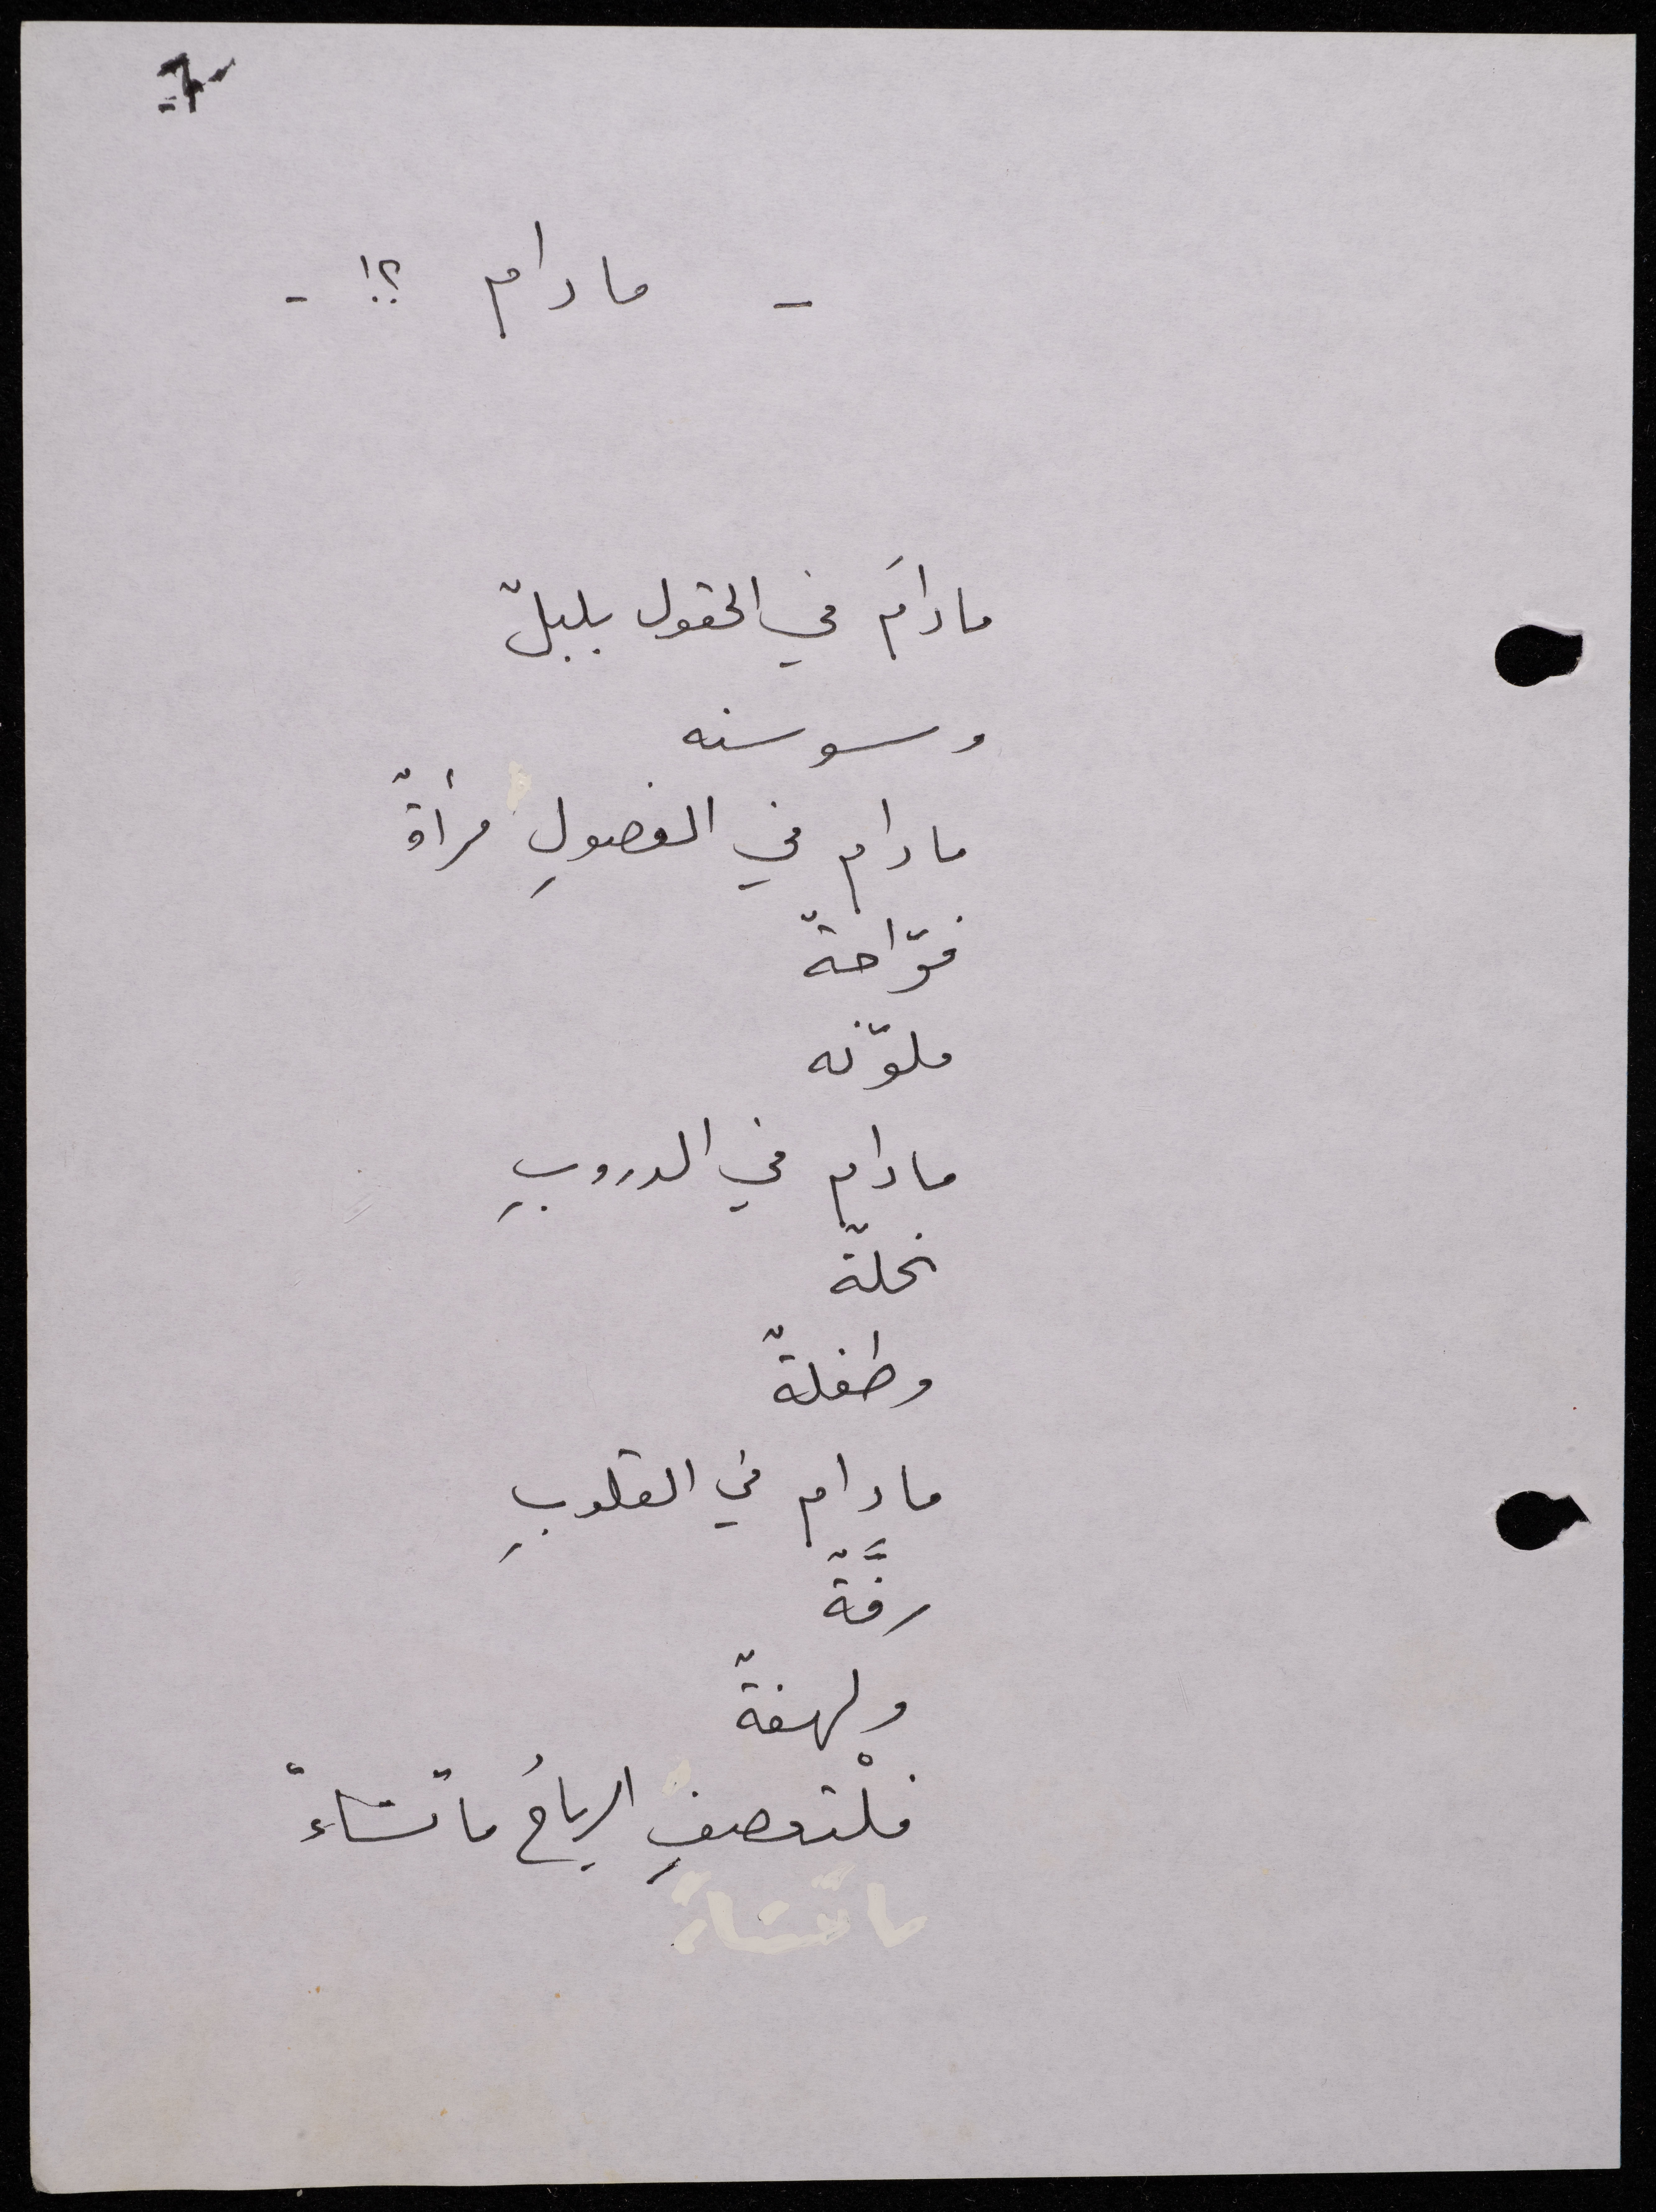 - مادام ؟! -
مادامَ في الحقول بلبلٌ
وسوسنه
مادام في الفصولِ مرأةٌ
فوّاحةٌ
ملوّنه
مادام في الدروبِ
نحلةٌ
وطفلةٌ
مادام في القلوبِ
رفَّةٌ
ولهفةٌ
فلْتعصفِ الرياحُ ما تشاءْ